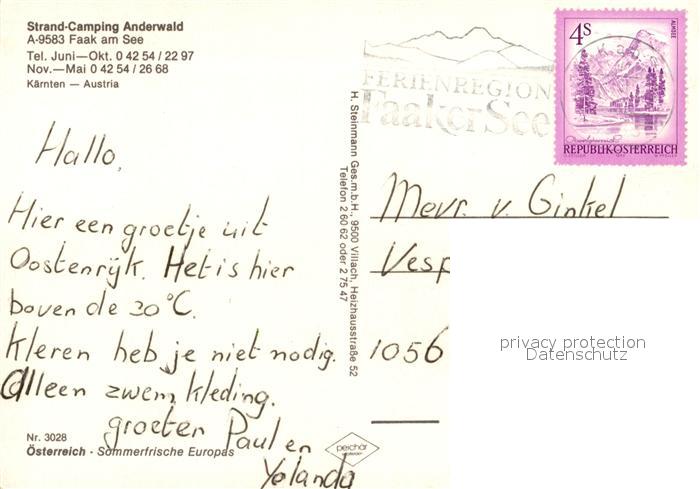 Strand-Camping Anderwald
A-9583 Faak am See
Tel. Juni—Okt. 0 42 54 / 22 97
Nov.—Mai 0 42 54 / 26 68
Kärnten — Austria
Hallo,
Hier een groetje uit
Oostenrijk. Het is hier
boven de 30°C.
Kleren heb je niet nodig.
Alleen zwemkleding.
groeten Paul en
Yolanda
Nr. 3028
Österreich · Sommerfrische Europas
H. Steinmann Ges.m.b.H., 9500 Villach, Heizhausstraße 52
Telefon 2 60 62 oder 2 75 47
FERIENREGION
Faaker See
4S
ALMSEE
REPUBLIK ÖSTERREICH
Mevr. v. Ginkel
Vesp
1056
privacy protection
Datenschutz